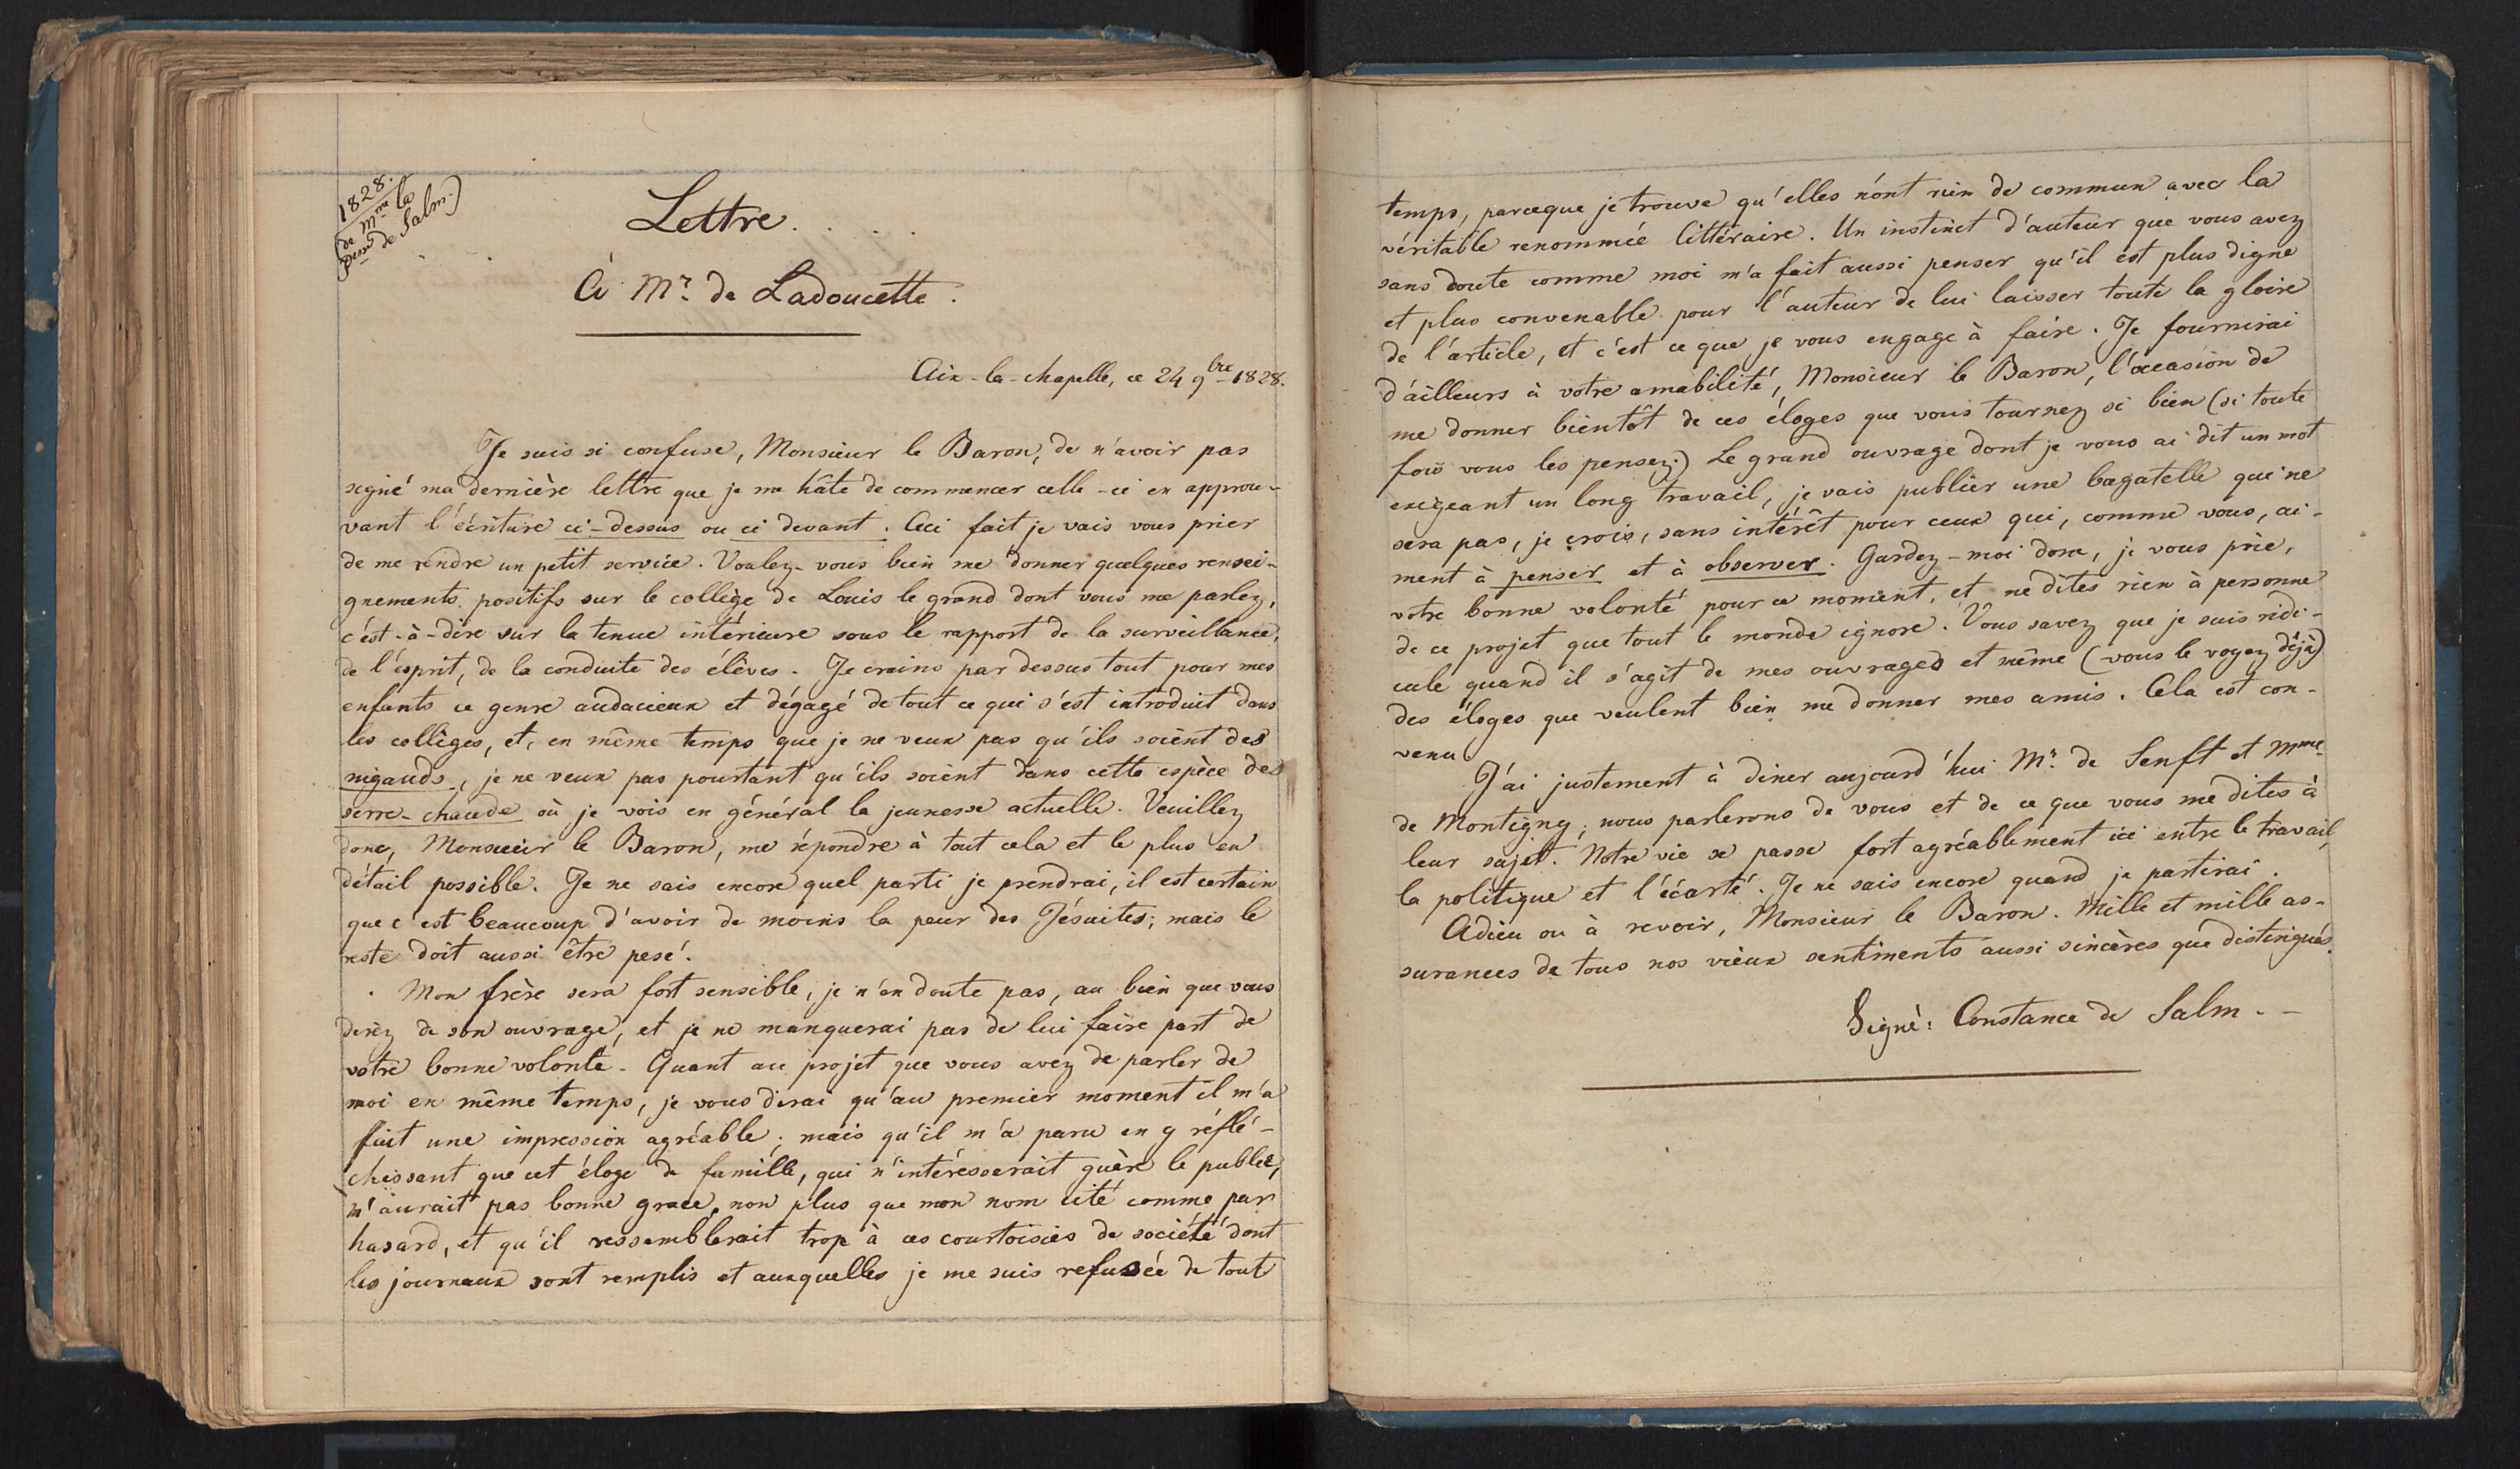 1828.
(de Mme la
Pcesse de Salm.)
Lettre . . . .
À Mr. de Ladoucette.
Aix-la-chapelle, ce 24 9bre 1828.
Je suis si confuse, Monsieur le Baron, de n'avoir pas
signé ma dernière lettre que je me hâte de commencer celle-ci en approu-
vant l'écriture ci-dessus ou ci devant. Ceci fait je vais vous prier
de me rendre un petit service. Voulez-vous bien me donner quelques rensei-
gnements positifs sur le collège de Louis le grand dont vous me parlez,
c'est-à-dire sur la tenue intérieure sous le rapport de la surveillance,
de l'esprit, de la conduite des élèves. Je crains par dessus tout pour mes
enfants ce genre audacieux et dégagé de tout ce qui s'est introduit dans
les collèges, et, en même temps que je ne veux pas qu'ils soient des
nigauds, je ne veux pas pourtant qu'ils soient dans cette espèce de
serre-chaude où je vois en général la jeunesse actuelle. Veuillez
donc, Monsieur le Baron, me répondre à tout cela et le plus en
détail possible. Je ne sais encore quel parti je prendrai, il est certain
que c'est beaucoup d'avoir de moins la peur des Jésuites; mais le
reste doit aussi être pesé.
Mon frère sera fort sensible, je n'en doute pas, au bien que vous
direz de son ouvrage, et je ne manquerai pas de lui faire part de
votre bonne volonté. Quant au projet que vous avez de parler de
moi en même temps, je vous dirai qu'au premier moment il m'a
fait une impression agréable; mais qu'il m'a paru en y réflé-
chissant que cet éloge de famille, qui n'intéresserait guère le public,
n'aurait pas bonne grace, non plus que mon nom cité comme par
hasard, et qu'il ressemblerait trop à ces courtoisies de société dont
les journaux sont remplis et auxquelles je me suis refusée de tout
temps, parceque je trouve qu'elles n'ont rien de commun avec la
véritable renommée littéraire. Un instinct d'auteur que vous avez
sans doute comme moi m'a fait aussi penser qu'il est plus digne
et plus convenable pour l'auteur de lui laisser toute la gloire
de l'article, et c'est ce que je vous engage à faire. Je fournirai
d'ailleurs à votre amabilité, Monsieur le Baron, l'occasion de
me donner bientôt de ces éloges que vous tournez si bien (si toute
fois vous les pensez.) Le grand ouvrage dont je vous ai dit un mot
exigeant un long travail, je vais publier une bagatelle qui ne
sera pas, je crois, sans intérêt pour ceux qui, comme vous, ai-
ment à penser et à observer. Gardez-moi donc, je vous prie,
votre bonne volonté pour ce moment, et ne dites rien à personne
de ce projet que tout le monde ignore. Vous savez que je suis ridi-
cule quand il s'agit de mes ouvrages et même (vous le voyez déjà)
des éloges que veulent bien me donner mes amis. Cela est con-
venu.
J'ai justement à diner aujourd'hui Mr. de Senft et Mme
de Montigny; nous parlerons de vous et de ce que vous me dites à
leur sujet. Notre vie se passe fort agréablement ici entre le travail,
la politique et l'écarté. Je ne sais encore quand je partirai.
Adieu ou à revoir, Monsieur le Baron. Mille et mille as-
surances de tous nos vieux sentiments aussi sincères que distingués.
Signé: Constance de Salm. -